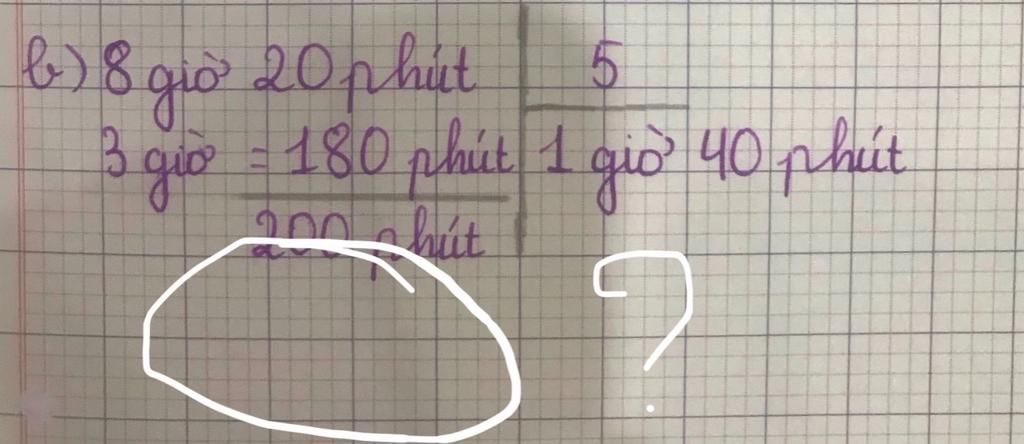 b) 8 giờ 20 phút 5
3 giờ = 180 phút 1 giờ 40 phút
200 phút
?